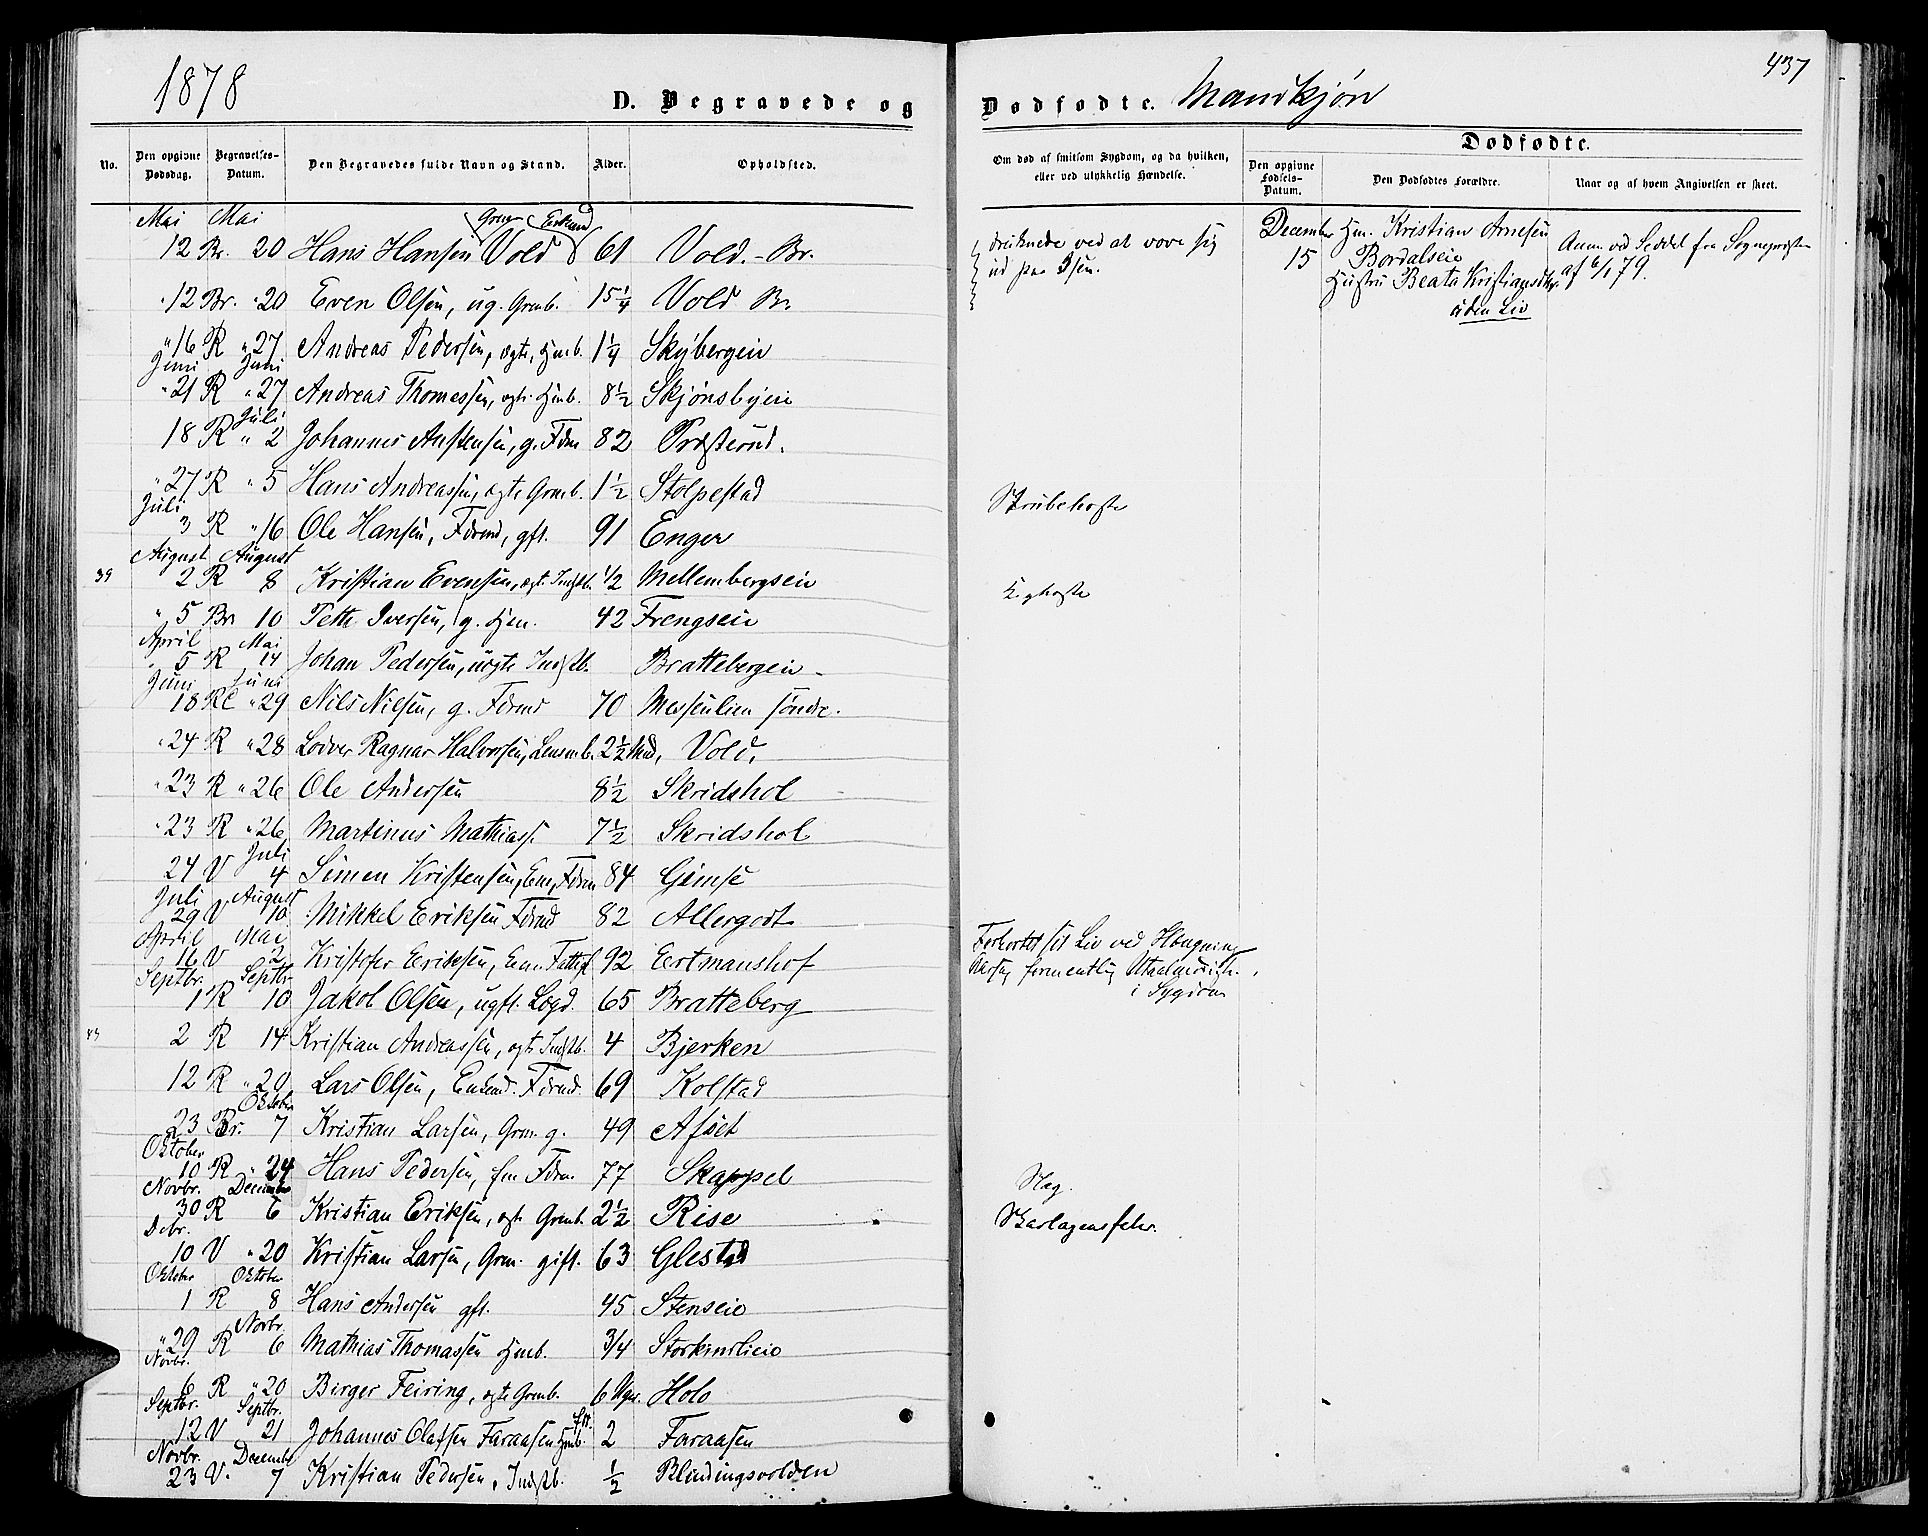 1878
D. Begravede og
Dødfødte. Mandkjøn
437
No.
Den opgivne Dødsdag.
Begravelses-Datum.
Den Begravedes fulde Navn og Stand.
Alder.
Opholdsted.
Om død af smitsom Sygdom, og da hvilken, eller ved ulykkelig Hændelse.
Dødfødte.
Den opgivne Fødsels-Datum.
Den Dødfødtes Forældre.
Naar og af hvem Angivelsen er skeet.
Mai Mai
12 Br. 20 Hans Hansen Vold 61 Vold. - Br.
druknede ved at vove sig
ud paa Isen.
December Hm. Kristian Arnesen
15 Bordalseie
Hustru Beata Kristiansdtr.
uden Liv
Anm. ved Seddel fra Sognepresten
af 6/1 79.
" 12 Br. " 20 Even Olsen, ug. Grmb. 15 1/4 Vold Br.
" 16 R " 27 Andreas Pedersen, ægte, Hmb. 1 1/4 Skybergeie
Juni Juni
" 21 R " 27 Andreas Thomessen, ægte Hmb. 8 1/2 Skjønsbyeie
Juli
18 R " 2 Johannes Anstensen, g. Fdrm 82 Præsterud.
" 27 R " 5 Hans Andreassen, ægte Grmb. 1 1/2 Stolpestad
Strubehoste
Juli
3 R " 16 Ole Hansen, Fdrmd, gft. 91 Enger
August August
39 2 R 8 Kristian Evensen, ægt. Indstb. 1/2 Mellembergseie
Kighoste
" 5 Br 10 Petter Iversen, g. Hm. 42 Frengseie
April Mai
" 5 R 14 Johan Pedersen, uægte Indstb. Brattebergeie
Juni Juni
18 R " 29 Nils Nilsen, g. Fdrmd 70 Messenlien søndre.
" 24 R " 28 Ragnar Halvorsen, Lensmb. 2 1/2 Mnd. Vold.
" 23 R " 26 Ole Andersen 8 1/2 Skridshol
" 23 R " 26 Martinus Mathiass. 7 1/2 Skridshol
Juli
24 V 4 Simen Kristensen, Em, Fdrm 84 Gimse
Juli August
29 V 10 Mikkel Eriksen Fdrmd 82 Allergodt
April Mai
16 V 2 Kristofer Eriksen, Enm. Fattigl. 92 Eertmanshof
Forkortet sit Liv ved Hængning
Aarsag formentlig Utaalmodigh.
i Sygdom
Septbr. Septbr.
1 R 10 Jakob Olsen, ugft. Logd. 65 Bratteberg
43 2 R 14 Kristian Andreassen, ægte Indstb. 4 Bjerken
12 R " 20 Lars Olsen, Enkemd. Fdrmd. 69 Kolstad
Oktober
23 Br. 7 Kristian Larsen, Grm. g. 49 Afset
Oktober
10 R " 24 Hans Pedersen, Fdrm. 77 Skappel
Slag.
Novbr. December
30 R 6 Kristian Eriksen, ægte Grmb. 2 1/2 Rise
Skarlagensfeber.
Debr.
10 V " 20 Kristian Larsen, Grm. gift. 63 Glestad
Oktober Oktober
1 R 8 Hans Andersen gft. 45 Stenseie
Novbr.
" 29 R 6 Mathias Thomassen Hmb. 3/4
Novbr.
6 R " 20 Birger Feiring, ægte Grmb. 6 Uger. Holo
Septbr. Septbr.
12 V 21 Johannes Olafsen Faraasen Hmb. 2 Faraasen
Novbr. December
23 V. 7 Kristian Pedersen, Indstb. 1/2 Blindingsvolden